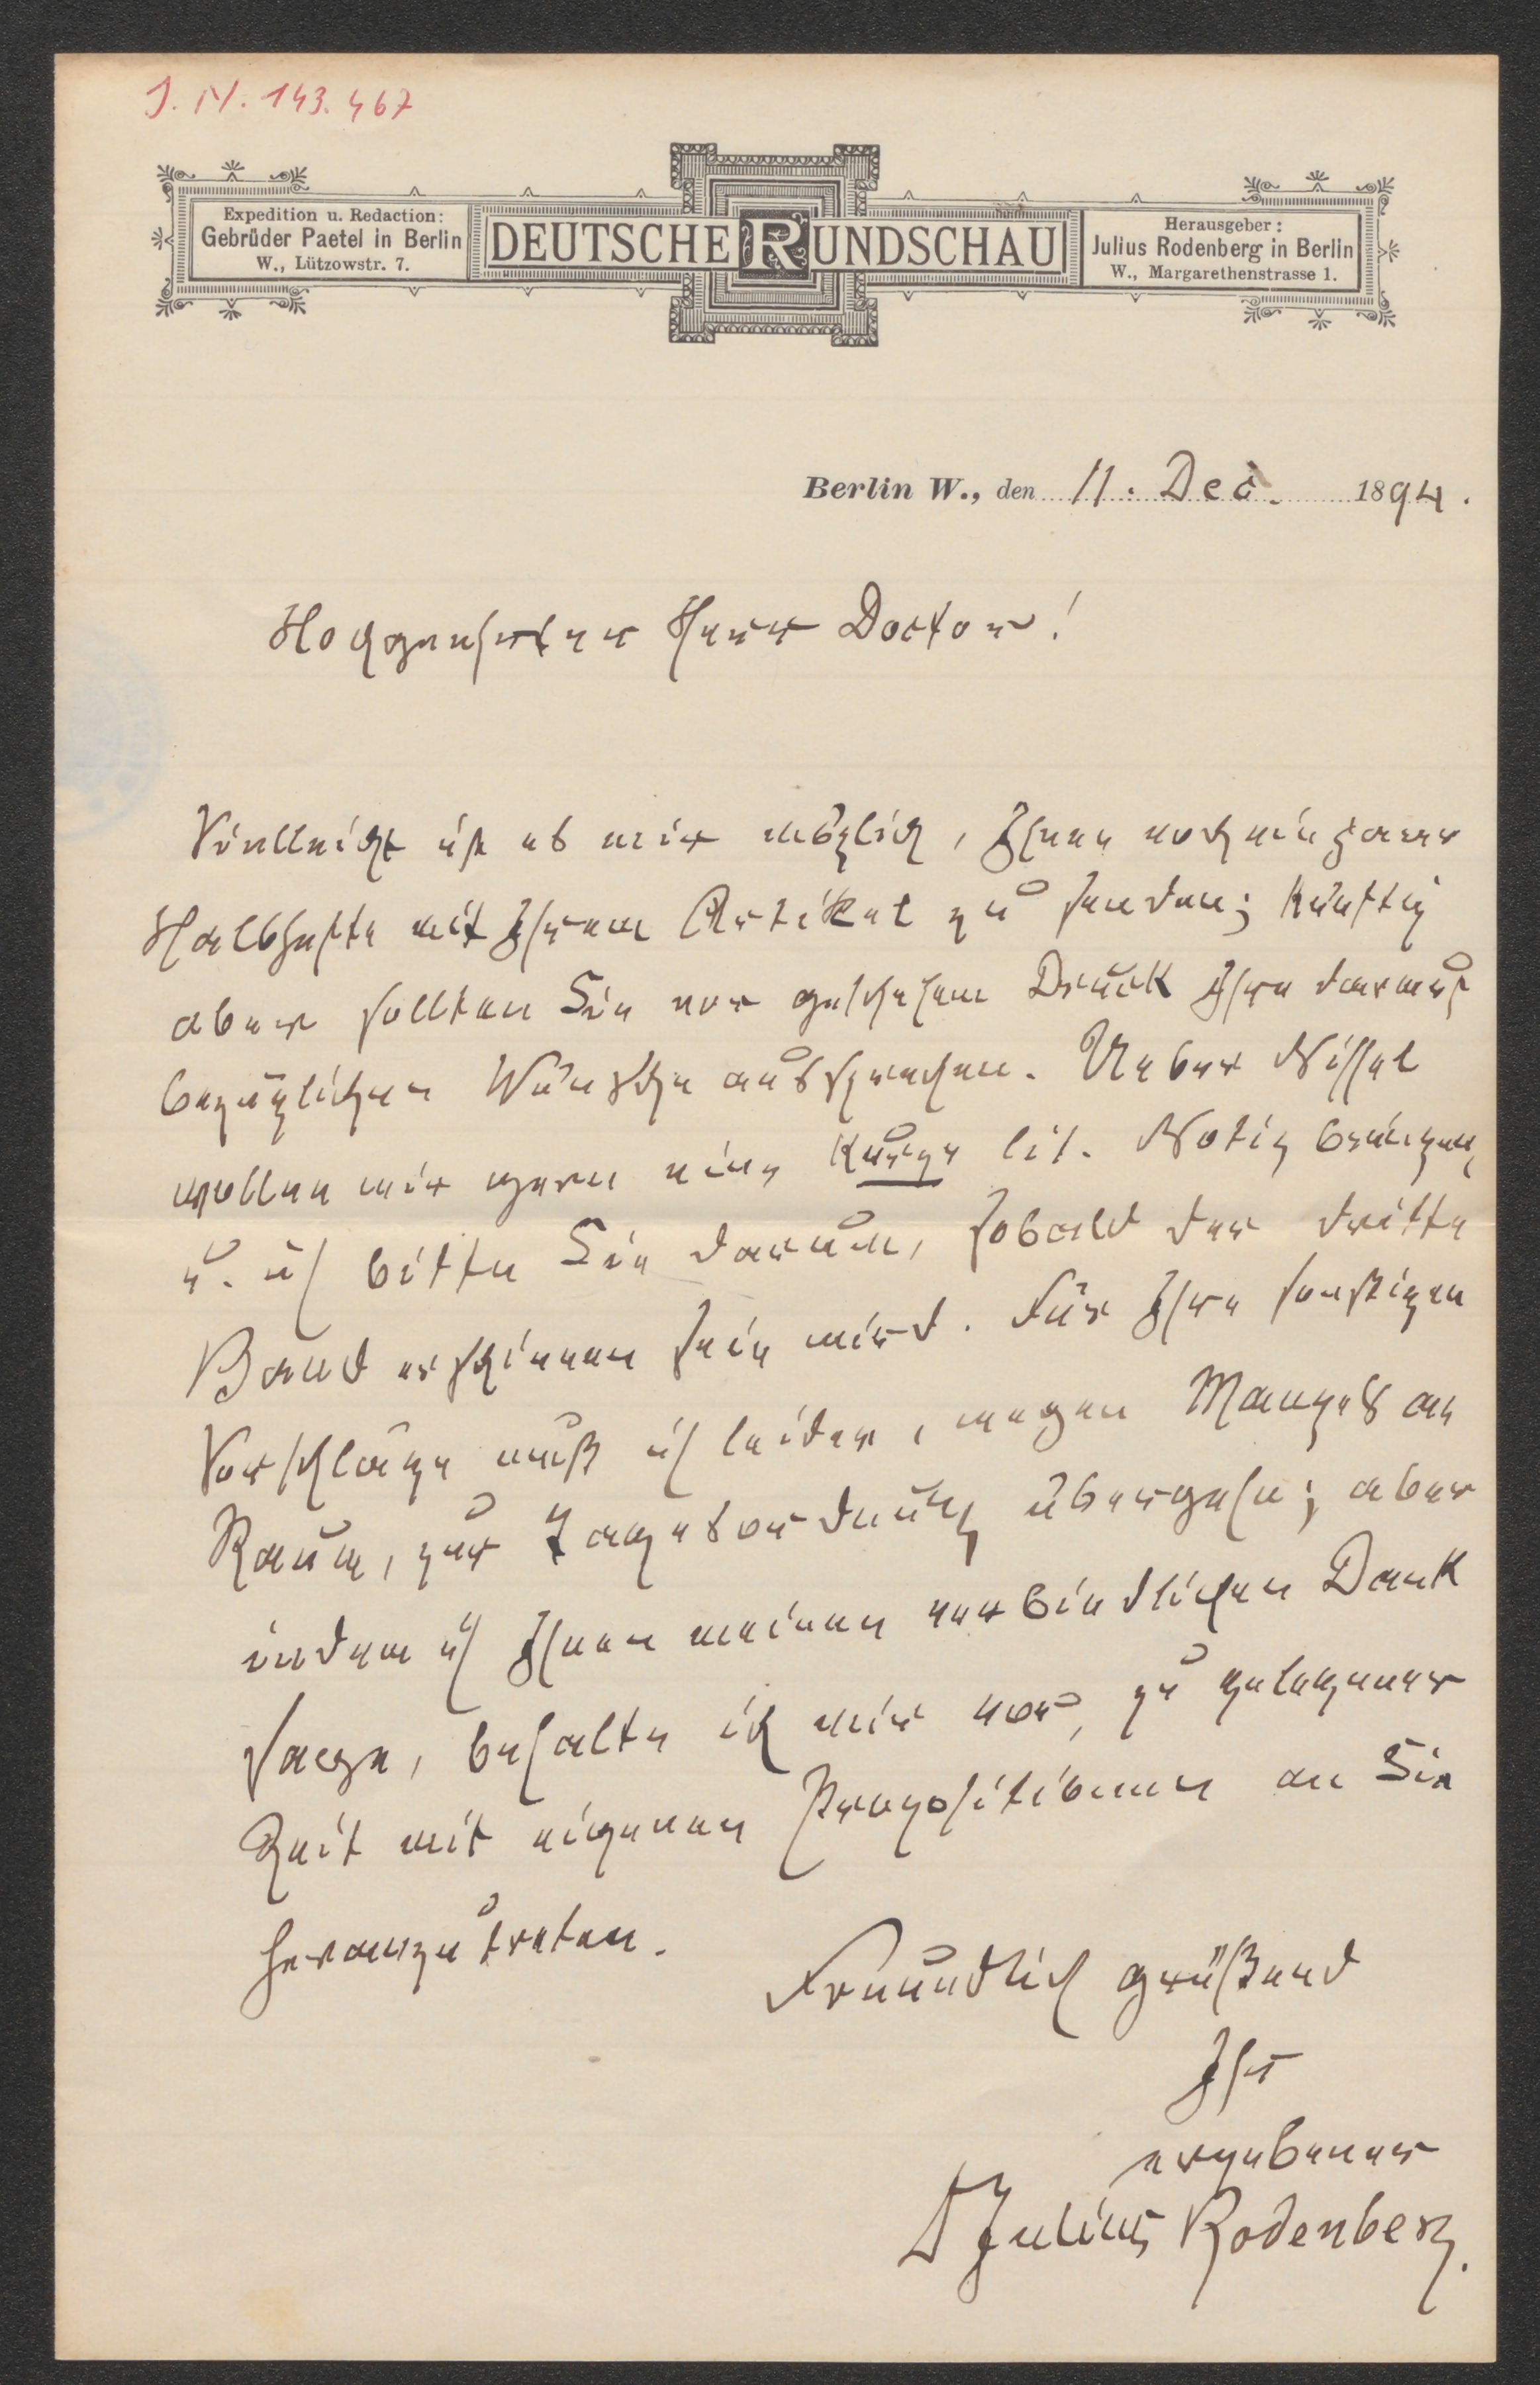 J. N. 143.467
Expedition u. Redaction:
Gebrüder Paetel in Berlin
W., Lützowstr. 7.
DEUTSCHE RUNDSCHAU
Herausgeber:
Julius Rodenberg in Berlin
W., Margarethenstrasse 1.
Berlin W., den 11. Dec. 1894.
Hochgeehrter Herr Doctor!
Vielleicht ist es mir möglich, Ihnen noch ein paar
Halbhefte mit Ihrem Artikel zu senden; künftig
aber sollten Sie vor geschehem Druck Ihre darauf
bezüglichen Wünsche aussprechen. Ueber Nissel
wollen wir gern eine kurze lit. Notiz bringen,
u. ich bitte Sie darum, sobald der dritte
Band erschienen sein wird. Für Ihre sonstigen
Vorschläge muß ich leider, wegen Mangels an
Raum, zur Tagesordnung übergehn; aber
indem ich Ihnen meinen verbindlichen Dank
sage, behalte ich mir vor, zu gelegener
Zeit mit eigenen Propositionen an Sie
heranzutreten.
Freundlich grüßend
Ihr
ergebener
Dr Julius Rodenberg.